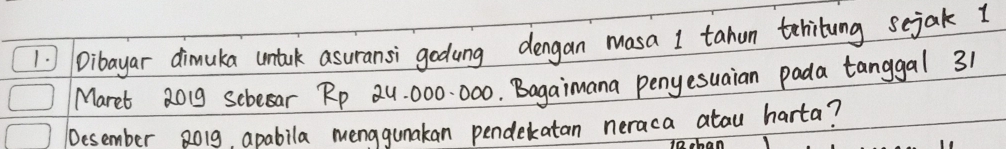 1. Dibayar dimuka untuk asuransi gedung dengan masa 1 tahun tehitung sejak 1
Maret 2019 sebesar Rp 24.000.000. Bagaimana penyesuaian pada tanggal 31
Desember 2019, apabila menggunakan pendekatan neraca atau harta?